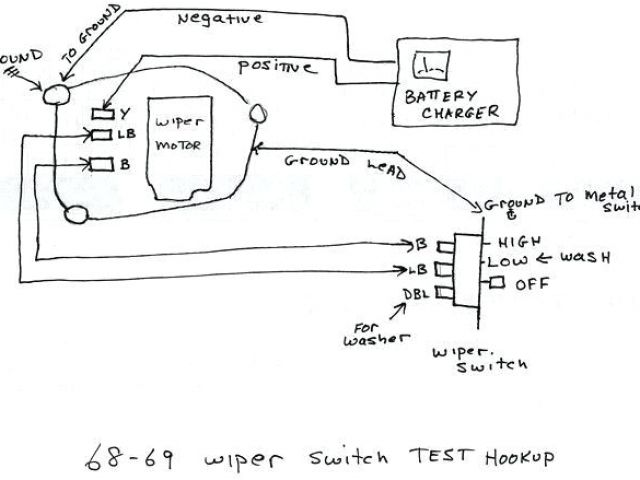 NEGATIVE
TO GROUND
POSITIVE
BATTERY
CHARGER
Y
LB
B
WIPER
MOTOR
GROUND LEAD
GROUND TO METAL
B
LB
DBL
HIGH
LOW ← WASH
OFF
FOR
WASHER
WIPER.
SWITCH
68-69 WIPER SWITCH TEST HOOKUP